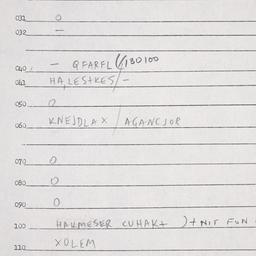 031 O
032 —
040 — QFARFL // 130100
041 HA,LESTKES/-
050 O
060 KNEJDLAX / AGANCJOR
070 O
080 O
090 O
100 HAKMESER CUHAKt )+NIT FUN
110 XOLEM